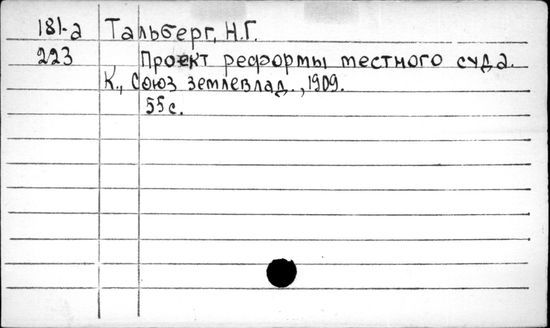 181-а Тальберг, Н.Г.
223 Проект реформы местного суда.
К., Союз землевлад., 1909.
55 с.